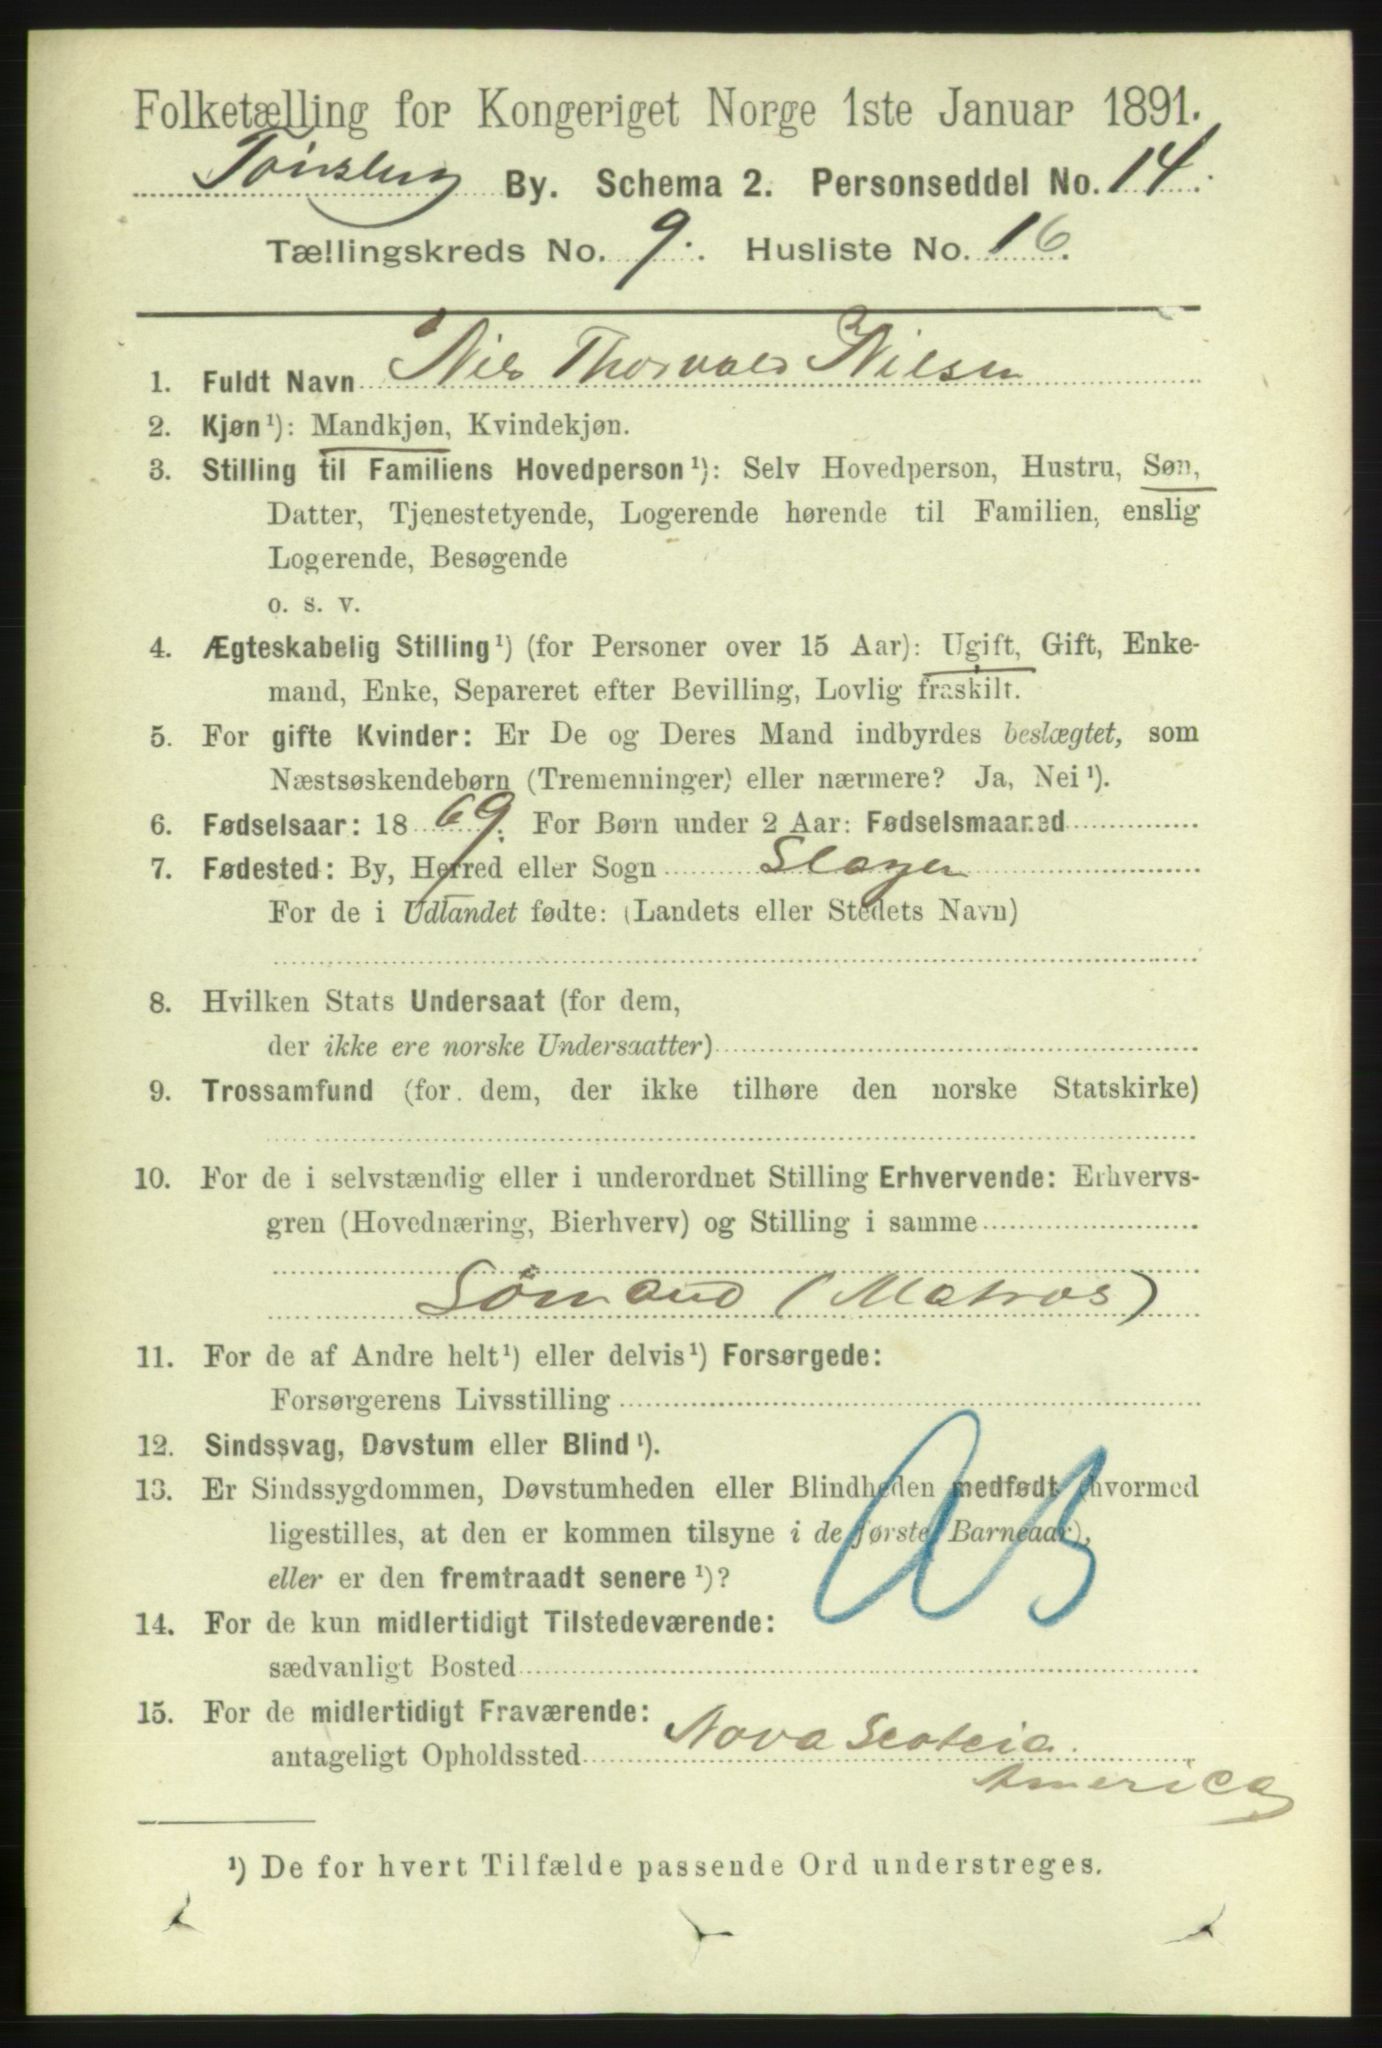 Folketælling for Kongeriget Norge 1ste Januar 1891.
Tønsberg By. Schema 2. Personseddel No. 14.
Tællingskreds No. 9. Husliste No. 16.
1. Fuldt Navn Nils Thorvald Nilsen
2. Kjøn¹): Mandkjøn, Kvindekjøn.
3. Stilling til Familiens Hovedperson¹): Selv Hovedperson, Hustru, Søn,
Datter, Tjenestetyende, Logerende hørende til Familien, enslig
Logerende, Besøgende
o. s. v.
4. Ægteskabelig Stilling¹) (for Personer over 15 Aar): Ugift, Gift, Enke-
mand, Enke, Separeret efter Bevilling, Lovlig fraskilt.
5. For gifte Kvinder: Er De og Deres Mand indbyrdes beslægtet, som
Næstsøskendebørn (Tremenninger) eller nærmere? Ja, Nei¹).
6. Fødselsaar: 1869. For Børn under 2 Aar: Fødselsmaaned
7. Fødested: By, Herred eller Sogn Slagen
For de i Udlandet fødte: (Landets eller Stedets Navn)
8. Hvilken Stats Undersaat (for dem,
der ikke ere norske Undersaatter)
9. Trossamfund (for dem, der ikke tilhøre den norske Statskirke)
10. For de i selvstændig eller i underordnet Stilling Erhvervende: Erhvervs-
gren (Hovednæring, Bierhverv) og Stilling i samme
Sømand (Matros)
11. For de af Andre helt¹) eller delvis¹) Forsørgede:
Forsørgerens Livsstilling
12. Sindssvag, Døvstum eller Blind¹).
13. Er Sindssygdommen, Døvstumheden eller Blindheden medfødt (hvormed
ligestilles, at den er kommen tilsyne i de første Barneaar),
eller er den fremtraadt senere¹)?
14. For de kun midlertidigt Tilstedeværende:
sædvanligt Bosted
15. For de midlertidigt Fraværende:
antageligt Opholdssted Nova Scoteia
America
¹) De for hvert Tilfælde passende Ord understreges.